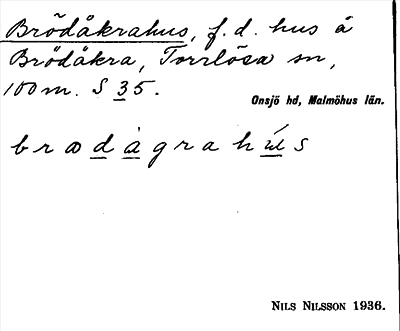 Brödåkrahus, f.d. hus å
Brödåkra, Torrlösa sn,
100 m. S 35.
Onsjö hd, Malmöhus län.
brødågrahus
NILS NILSSON 1936.